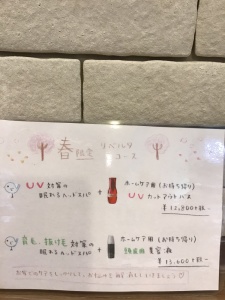 春限定 リバイタル
コース
UV対策の
眠れるヘッドスパ
+
ホームケア用(お持ち帰り)
UVカットアウトバス
¥12,800+税~
育毛、抜け毛対策の
眠れるヘッドスパ
+
ホームケア用(お持ち帰り)
頭皮用美容液
¥13,600+税~